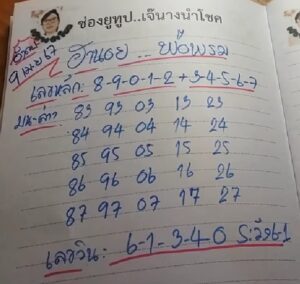 ช่องยูทูป..เจ๊นางนำโชค
9 เมย 67
ฮานอย..พ่อพรม
เลขหลัก: 8-9-0-1-2+3-4-5-6-7
บน-ล่าง 83 93 03 13 23
84 94 04 14 24
85 95 05 15 25
86 96 06 16 26
87 97 07 17 27
เลขวิน: 6-1-3-4-0 ระวัง 6-1